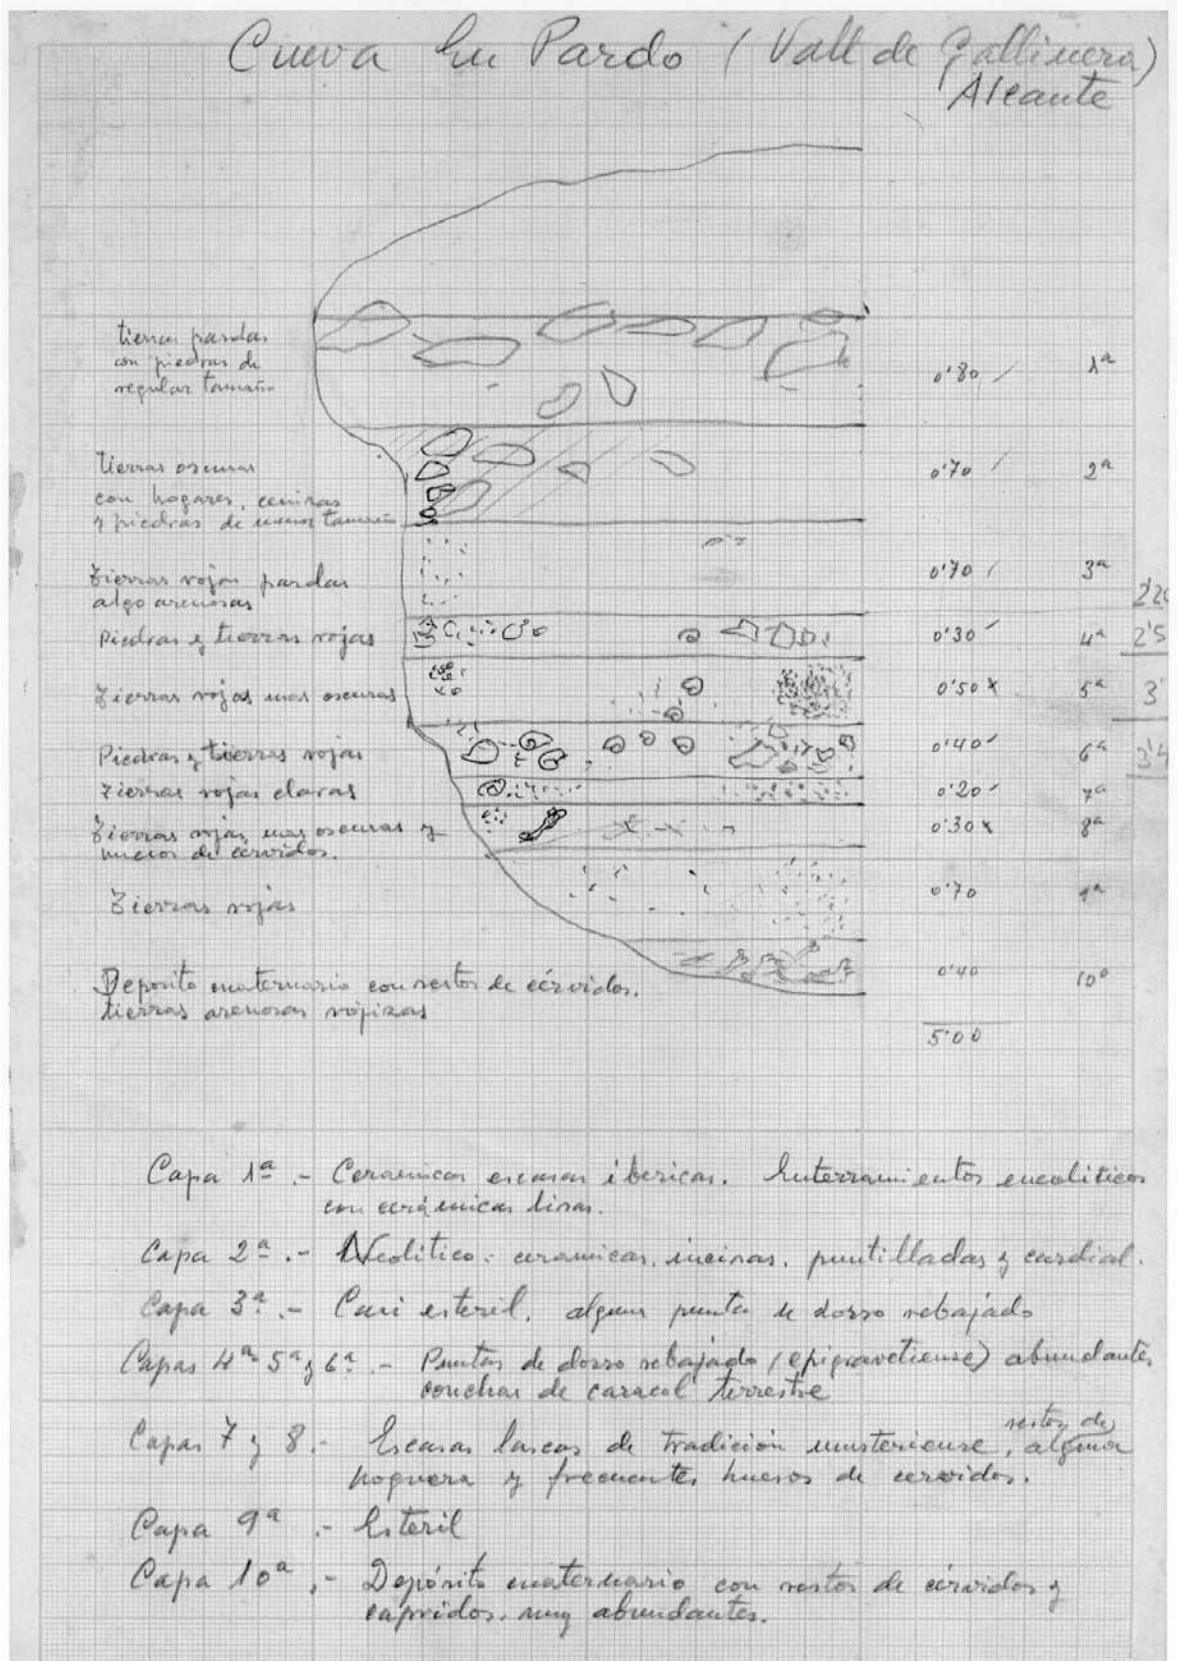 Cueva En Pardo (Vall de Gallinera)
Alicante
tierras pardas
con piedras de
regular tamaño
0'80 1ª
tierras oscuras
con hogares, cenizas
y piedras de menor tamaño
0'70 2ª
tierras rojas pardas
algo arenosas
0'70 3ª
2'20
Piedras y tierras rojas
0'30 4ª 2'5
tierras rojas mas oscuras
0'50 x 5ª 3'
Piedras y tierras rojas
0'40 6ª 3'4
tierras rojas claras
0'20 7ª
tierras rojas mas oscuras y
huesos de cérvidos.
0'30 x 8ª
tierras rojas
0'70 9ª
0'40 10ª
Deposito cuaternario con restos de cérvidos.
tierras arenosas rojizas
5'00
Capa 1ª .- Ceramicas escasas ibericas. Enterramientos eneoliticos
con cerámicas lisas.
Capa 2ª .- Neolitico. ceramicas, incisas, puntilladas y cardial.
Capa 3ª .- Casi esteril, alguna punta de dorso rebajado
Capas 4ª 5ª y 6ª .- Puntas de dorso rebajado (epigravetiense) abundantes
conchas de caracol terrestre
Capas 7 y 8 .- Escasas lascas de tradición musteriense, restos de alguna
hoguera y frecuentes huesos de cervidos.
Capa 9ª .- Esteril
Capa 10ª .- Depósito cuaternario con restos de cérvidos y
capridos. muy abundantes.